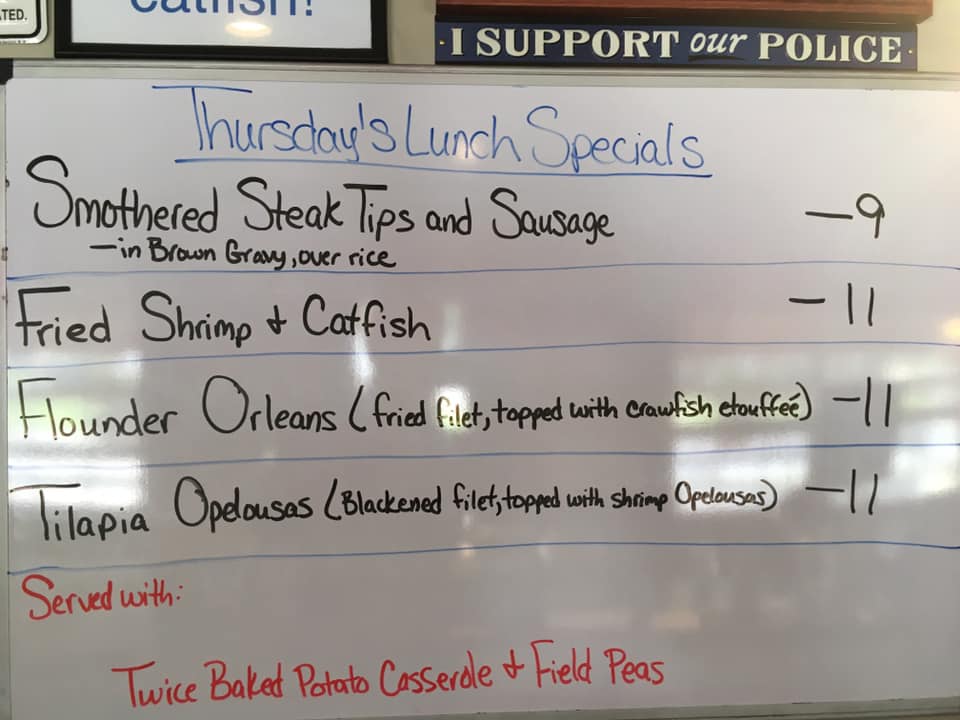 TED.
catfish!
· I SUPPORT our POLICE ·
Thursday's Lunch Specials
Smothered Steak Tips and Sausage — 9
— in Brown Gravy, over rice
Fried Shrimp + Catfish — 11
Flounder Orleans (fried filet, topped with crawfish etouffeé) — 11
Tilapia Opelousas (Blackened filet, topped with shrimp Opelousas) — 11
Served with:
Twice Baked Potato Casserole + Field Peas